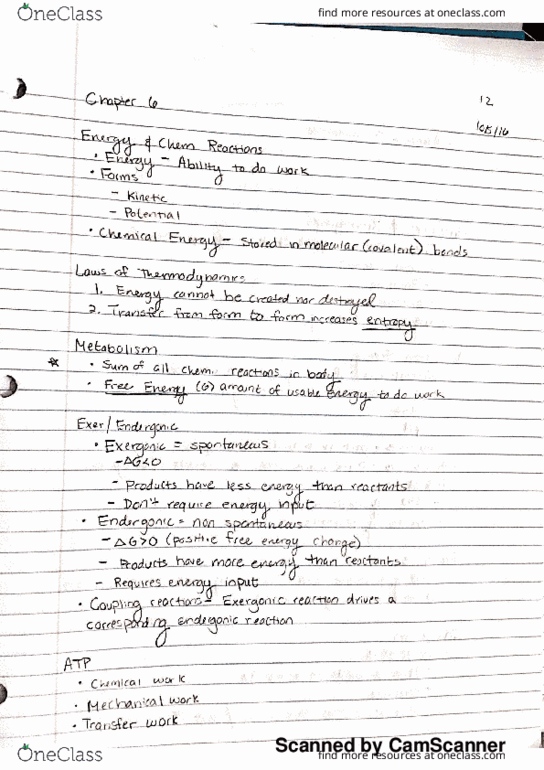 OneClass
find more resources at oneclass.com
Chapter 6
12
Energy & Chem Reactions
• Energy – Ability to do work
• Forms
– Kinetic
– Potential
• Chemical Energy – Stored in molecular (covalent) bonds
Laws of Thermodynamics
1. Energy cannot be created nor destroyed
2. Transfer from form to form increases entropy
Metabolism
* • Sum of all chem. reactions in body
• Free Energy (G) amount of usable energy to do work
Exer/Endergonic
• Exergonic = spontaneous
– ΔG<0
– Products have less energy than reactants
– Don't require energy input
• Endergonic = non spontaneous
– ΔG>0 (positive free energy change)
– Products have more energy than reactants
– Requires energy input
• Coupling reactions – Exergonic reaction drives a
corresponding endergonic reaction
ATP
• Chemical work
• Mechanical work
• Transfer work
Scanned by CamScanner
OneClass
find more resources at oneclass.com